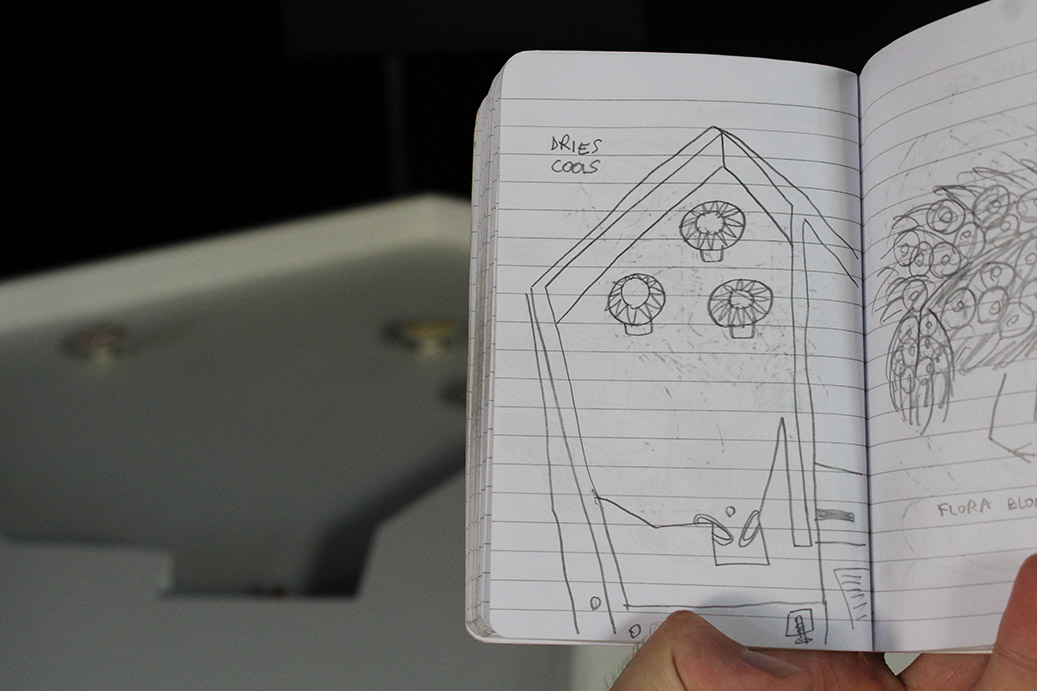 DRIES
COOLS
FLORA